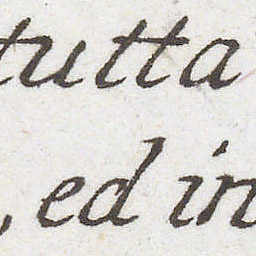 tutta
, ed in